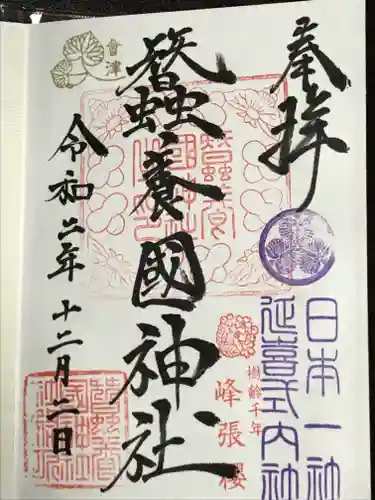 奉拝
日本一社
延喜式内社
樹齢千年
峰張桜
蠶養國神社
會津
令和二年十二月二日